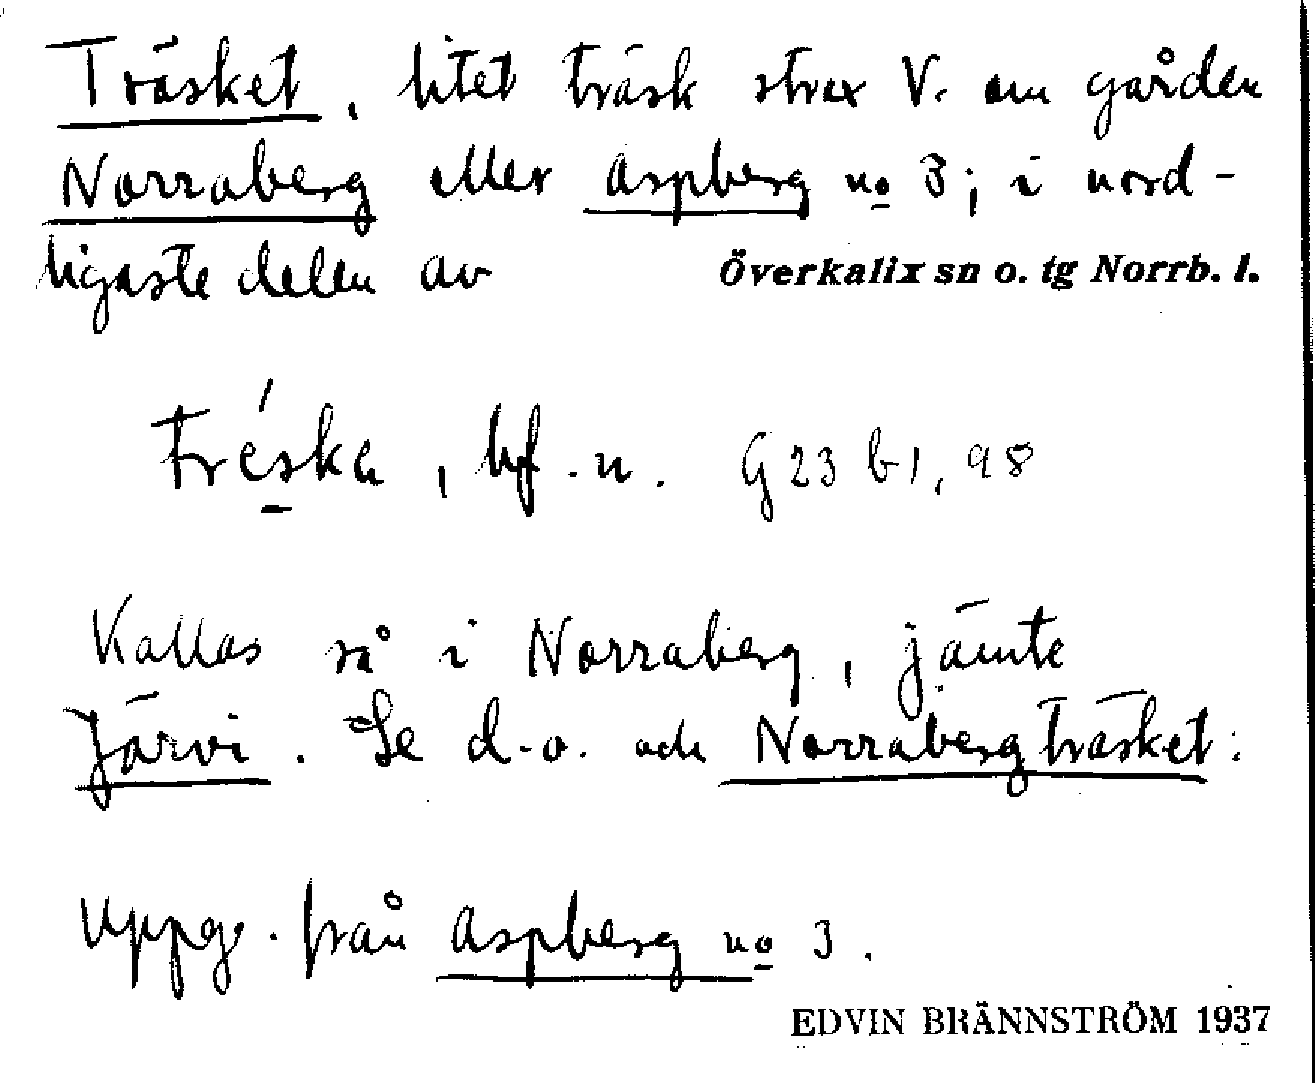 Träsket, litet träsk strax V. om gården
Norraberg eller Aspberg no 3; i nord-
ligaste delen av Överkalix sn o. tg Norrb. l.
tréska, bf. n. G 23 b1, 98
Kallas så i Norraberg, jämte
Järvi. Se d.o. och Norrabergträsket.
Uppg. från Aspberg no 3.
EDVIN BRÄNNSTRÖM 1937